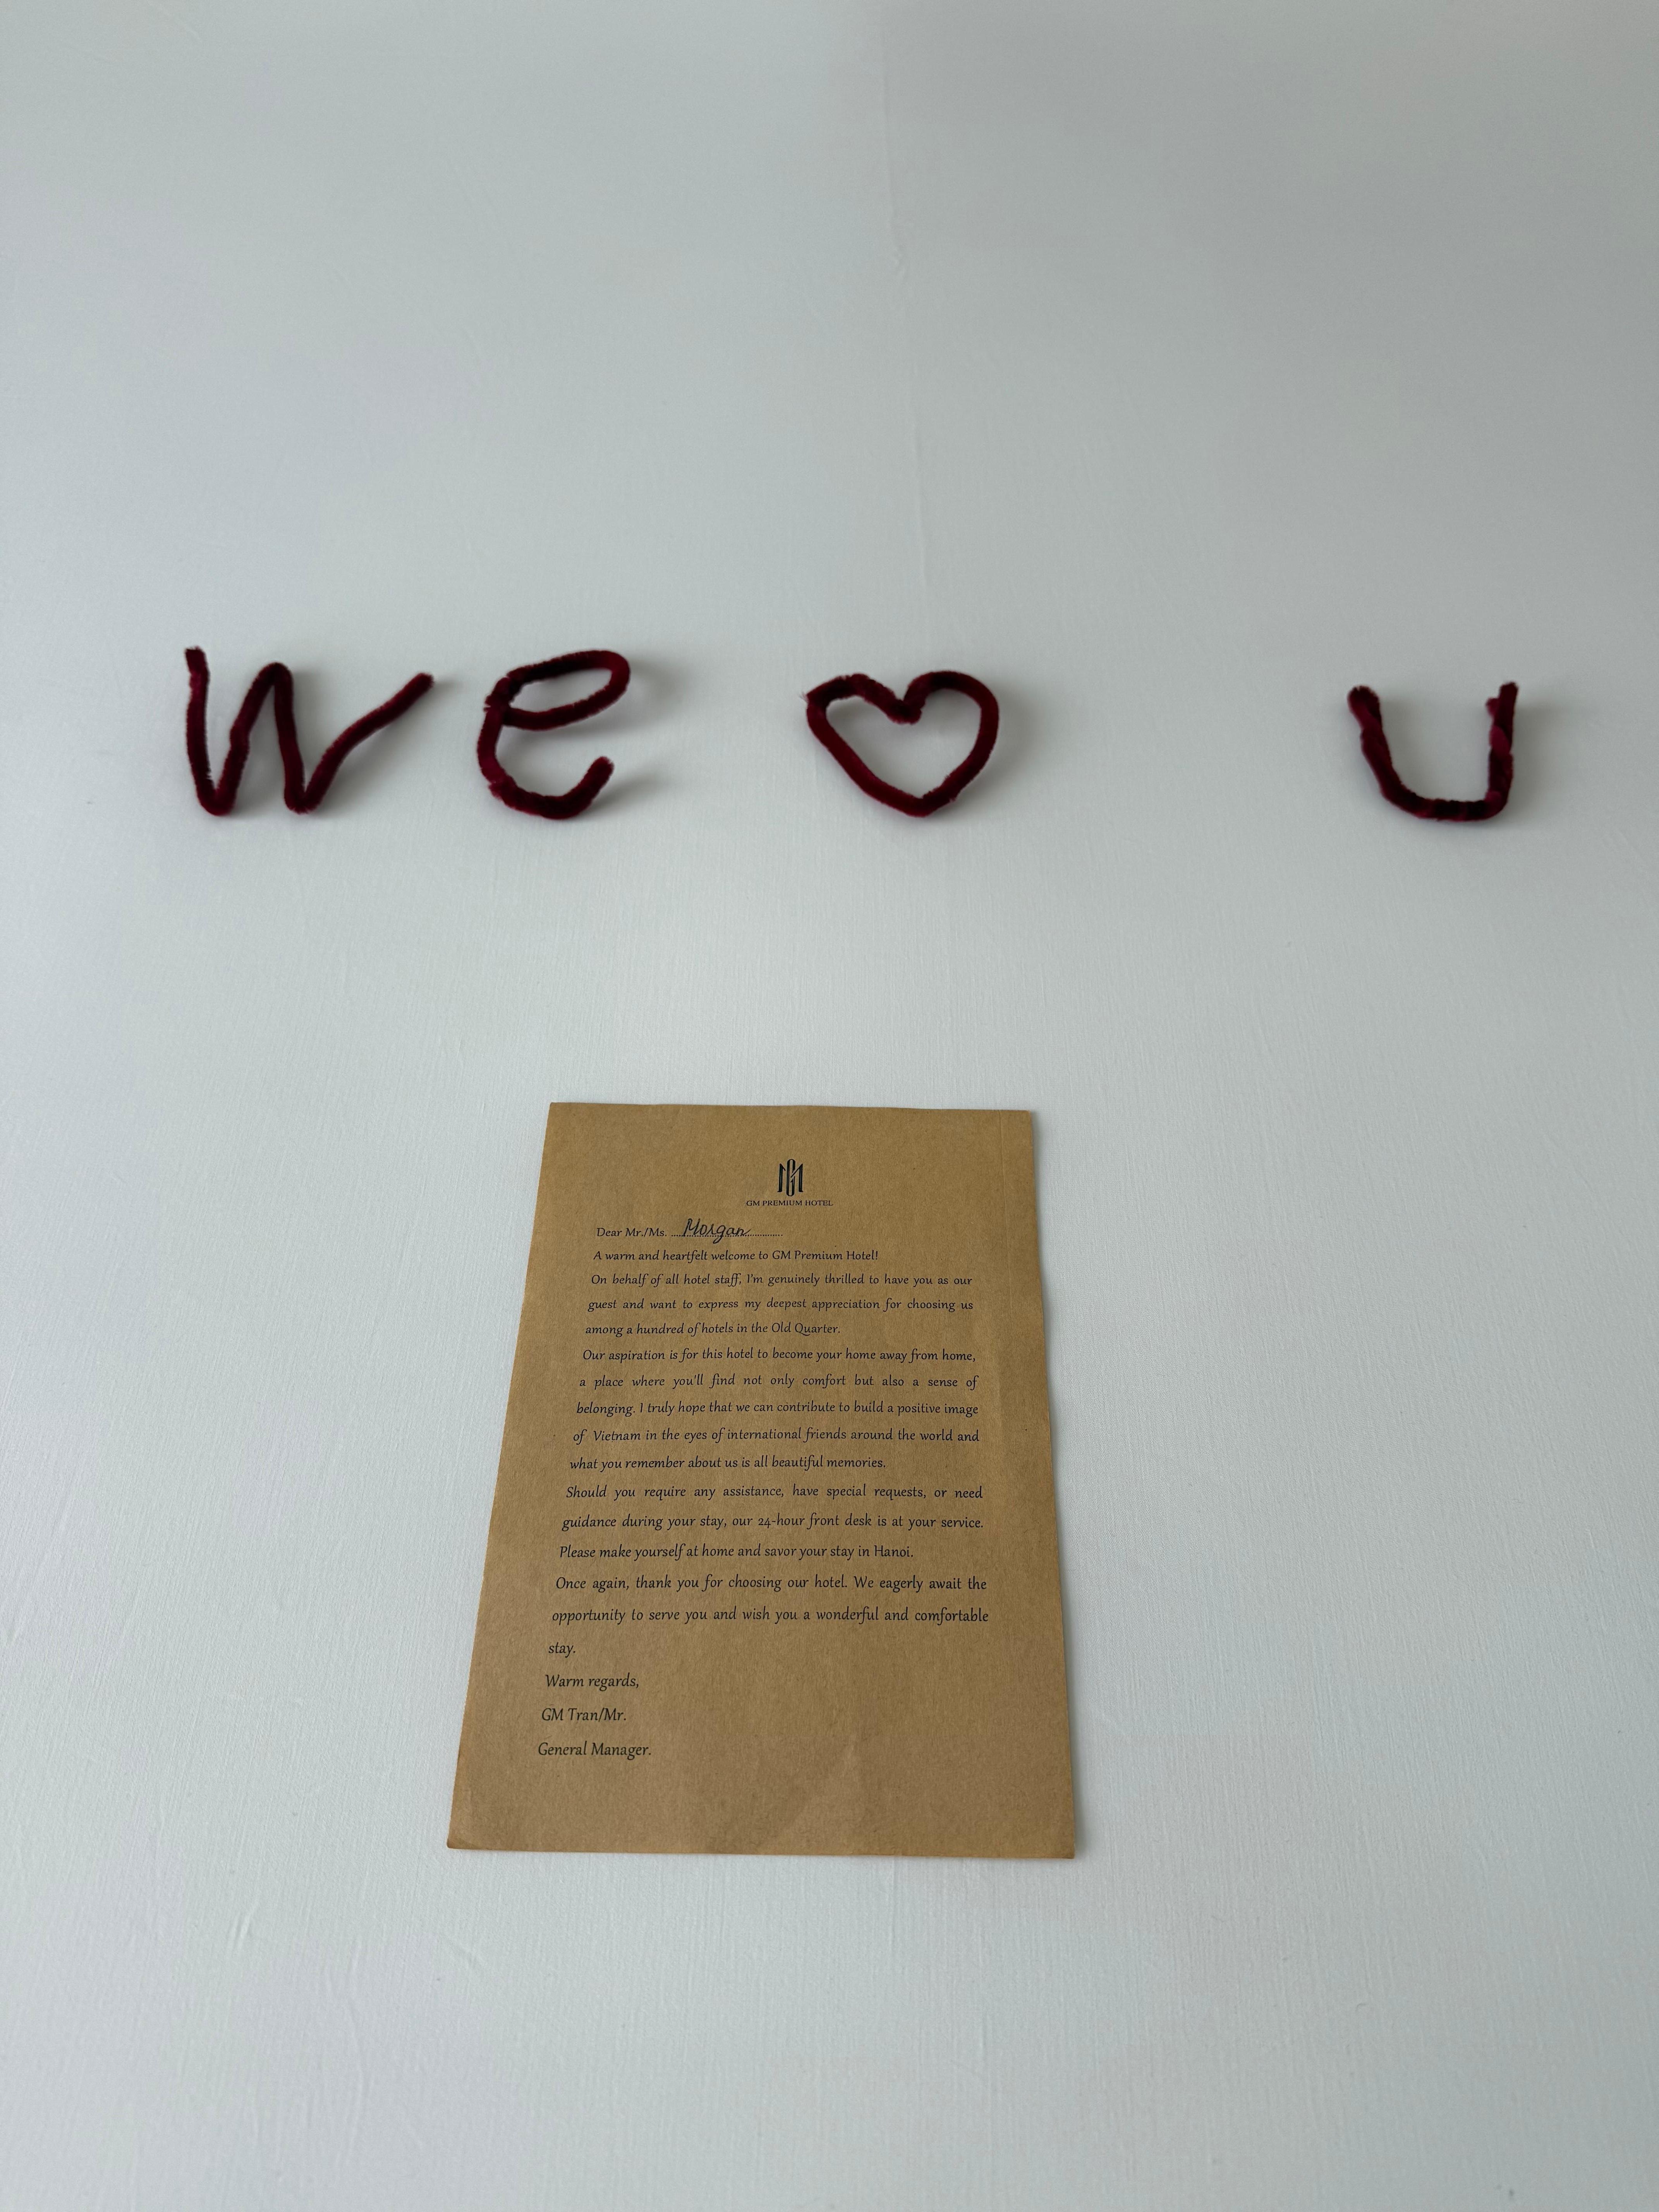 we ♡ u
GM PREMIUM HOTEL
Dear Mr./Ms. Morgan
A warm and heartfelt welcome to GM Premium Hotel!
On behalf of all hotel staff, I'm genuinely thrilled to have you as our
guest and want to express my deepest appreciation for choosing us
among a hundred of hotels in the Old Quarter.
Our aspiration is for this hotel to become your home away from home,
a place where you'll find not only comfort but also a sense of
belonging. I truly hope that we can contribute to build a positive image
of Vietnam in the eyes of international friends around the world and
what you remember about us is all beautiful memories.
Should you require any assistance, have special requests, or need
guidance during your stay, our 24-hour front desk is at your service.
Please make yourself at home and savor your stay in Hanoi.
Once again, thank you for choosing our hotel. We eagerly await the
opportunity to serve you and wish you a wonderful and comfortable
stay.
Warm regards,
GM Tran/Mr.
General Manager.